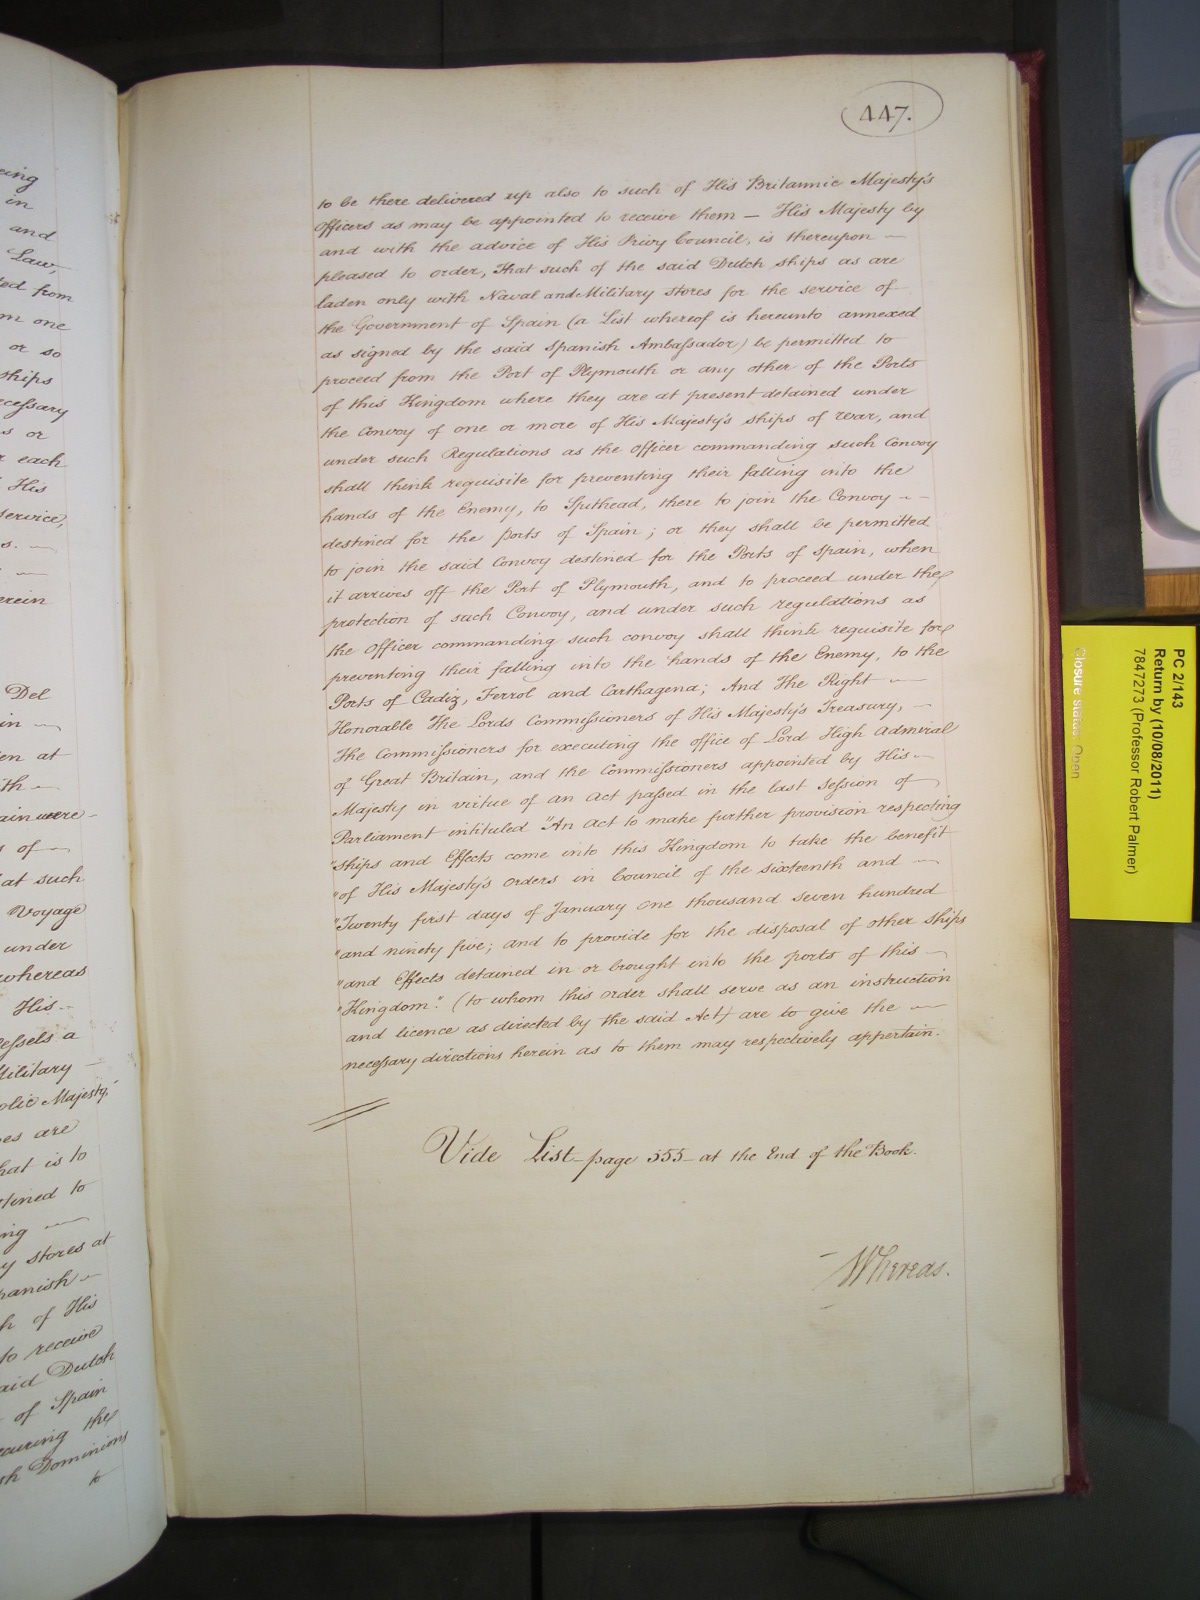 eing
in
and
Law,
ed from
m one
or so
ships
ecessary
s or
r each
His
service,
s.
erein
Del
in
en at
th
ain were
s of
at such
Voyage
under
whereas
His
essels a
Military
olic Majesty,
es are
hat is to
tined to
ng
y stores at
panish
h of His
to receive
aid Dutch
of Spain
ecuring the
sh Dominions
to
447.
to be there delivered up also to such of His Britannic Majesty's
Officers as may be appointed to receive them — His Majesty by
and with the advice of His Privy Council, is thereupon —
pleased to order, That such of the said Dutch ships as are
laden only with Naval and Military stores for the service of
the Government of Spain (a List whereof is hereunto annexed
as signed by the said Spanish Ambassador) be permitted to
proceed from the Port of Plymouth or any other of the Ports
of this Kingdom where they are at present detained under
the Convoy of one or more of His Majesty's ships of war, and
under such Regulations as the Officer commanding such Convoy
shall think requisite for preventing their falling into the
hands of the Enemy, to Spithead, there to join the Convoy —
destined for the Ports of Spain; or they shall be permitted
to join the said Convoy destined for the Ports of Spain, when
it arrives off the Port of Plymouth, and to proceed under the
protection of such Convoy, and under such regulations as
the Officer commanding such convoy shall think requisite for
preventing their falling into the hands of the Enemy, to the
Ports of Cadiz, Ferrol and Carthagena; And The Right —
Honorable The Lords Commissioners of His Majesty's Treasury, —
The Commissioners for executing the office of Lord High Admiral
of Great Britain, and the Commissioners appointed by His —
Majesty in virtue of an Act passed in the last Session of —
Parliament intituled "An Act to make further provision respecting
"ships and Effects come into this Kingdom to take the benefit
"of His Majesty's orders in Council of the sixteenth and —
"Twenty first days of January One thousand seven hundred
"and ninety five; and to provide for the disposal of other ships
"and Effects detained in or brought into the ports of this —
"Kingdom". (to whom this order shall serve as an instruction
and licence as directed by the said Act) are to give the —
necessary directions herein as to them may respectively appertain.
Vide List page 555 at the End of the Book.
Whereas.
PC 2/143
Return by (10/08/2011)
7847273 (Professor Robert Palmer)
Closure status: Open